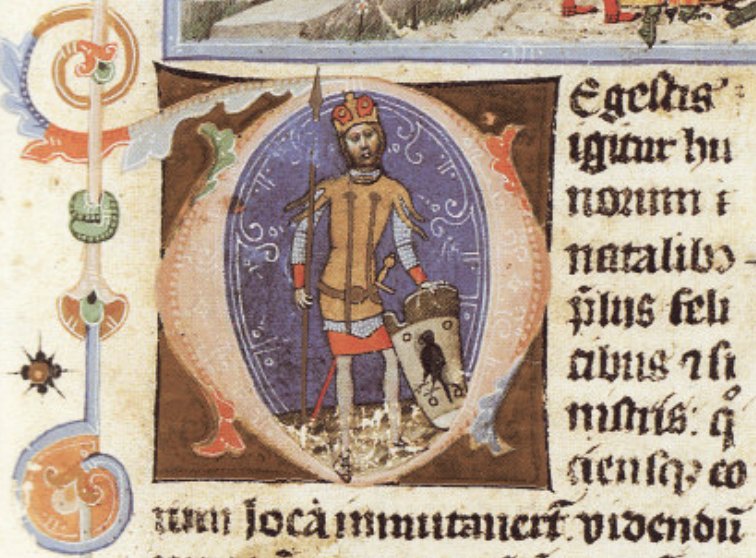 Egestis
igitur hu
norum
natalibꝫ
p̄liis feli
cibus ⁊ si
nistris: qͦ
ciensqꝫ eo
rum loca immutauert̄. videndū